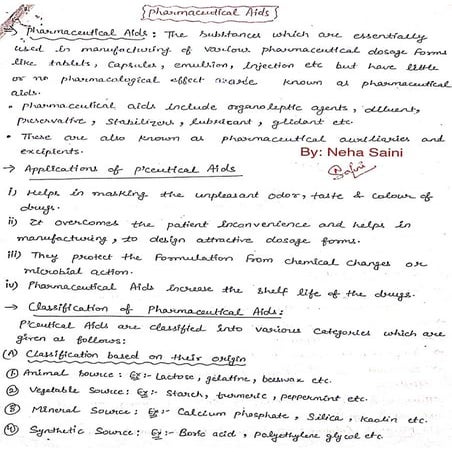 {Pharmaceutical Aids}
→ Pharmaceutical Aids: The substances which are essentially
used in manufacturing of various pharmaceutical dosage forms
like tablets, Capsules, emulsion, Injection etc but have little
or no pharmacological effect are known as pharmaceutical
aids.
• Pharmaceutical aids include organoleptic agents, diluent,
preservative, Stabilizers, lubricant, glidant etc.
• These are also known as pharmaceutical auxiliaries and
excipients.
By: Neha Saini
Saini
→ Applications of P'ceutical Aids
i) Helps in masking the unpleasant odor, taste & colour of
drugs.
ii) It overcomes the patient inconvenience and helps in
manufacturing, to design attractive dosage forms.
iii) They protect the Formulation From chemical changes or
microbial action.
iv) Pharmaceutical Aids increase the shelf life of the drugs.
→ Classification of Pharmaceutical Aids:
P'ceutical Aids are classified into various categories which are
given as follows:
(A) Classification based on their origin
① Animal Source: Ex:- Lactose, gelatine, beeswax etc.
② Vegetable Source: Ex:- Starch, turmeric, peppermint etc.
③ Mineral Source: Ex:- Calcium phosphate, Silica, Kaolin etc.
④ Synthetic Source: Ex:- Boric acid, Polyethylene glycol etc.